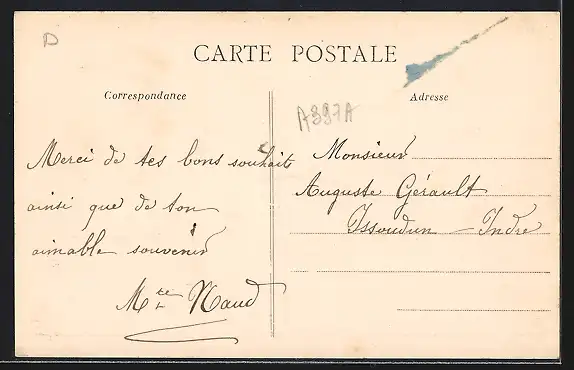 D
CARTE POSTALE
Correspondance
Adresse
A397A
Merci de tes bons souhaits
ainsi que de ton
aimable souvenir
Mte Naud
Monsieur
Auguste Gérault
Issoudun - Indre